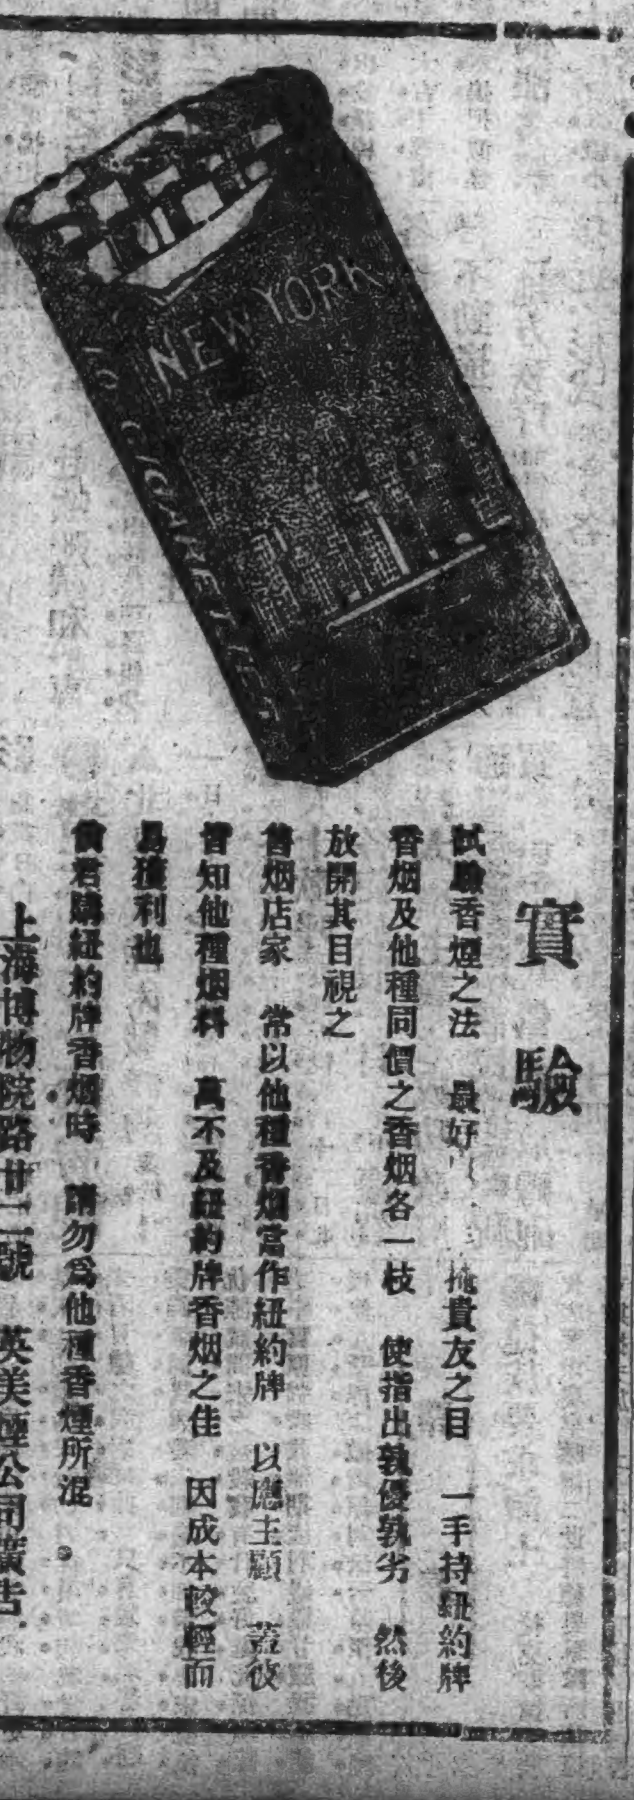 NEW YORK
10 CIGARETTES
實驗
試驗香煙之法 最好 掩貴友之目 一手持紐約牌
香烟及他種同價之香烟各一枝 使指出孰優孰劣 然後
放開其目視之
烟店家 常以他種香烟當作紐約牌 以應主顧 蓋彼
皆知他種烟料 萬不及紐約牌香烟之佳 因成本較輕而
易獲利也
倘君購紐約牌香烟時 請勿爲他種香煙所混
上海博物院路廿二號 英美煙公司廣告